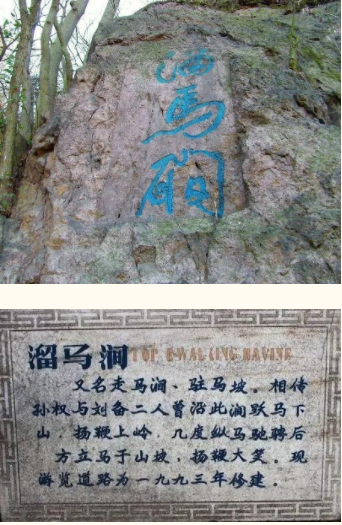 溜马涧
溜马涧 TOP G-WALKING RAVINE
又名走马涧、驻马坡。相传
孙权与刘备二人曾沿此涧跃马下
山，扬鞭上岭，几度纵马驰骋后
方立马于山坡，扬鞭大笑。现
游览道路为一九九三年修建。